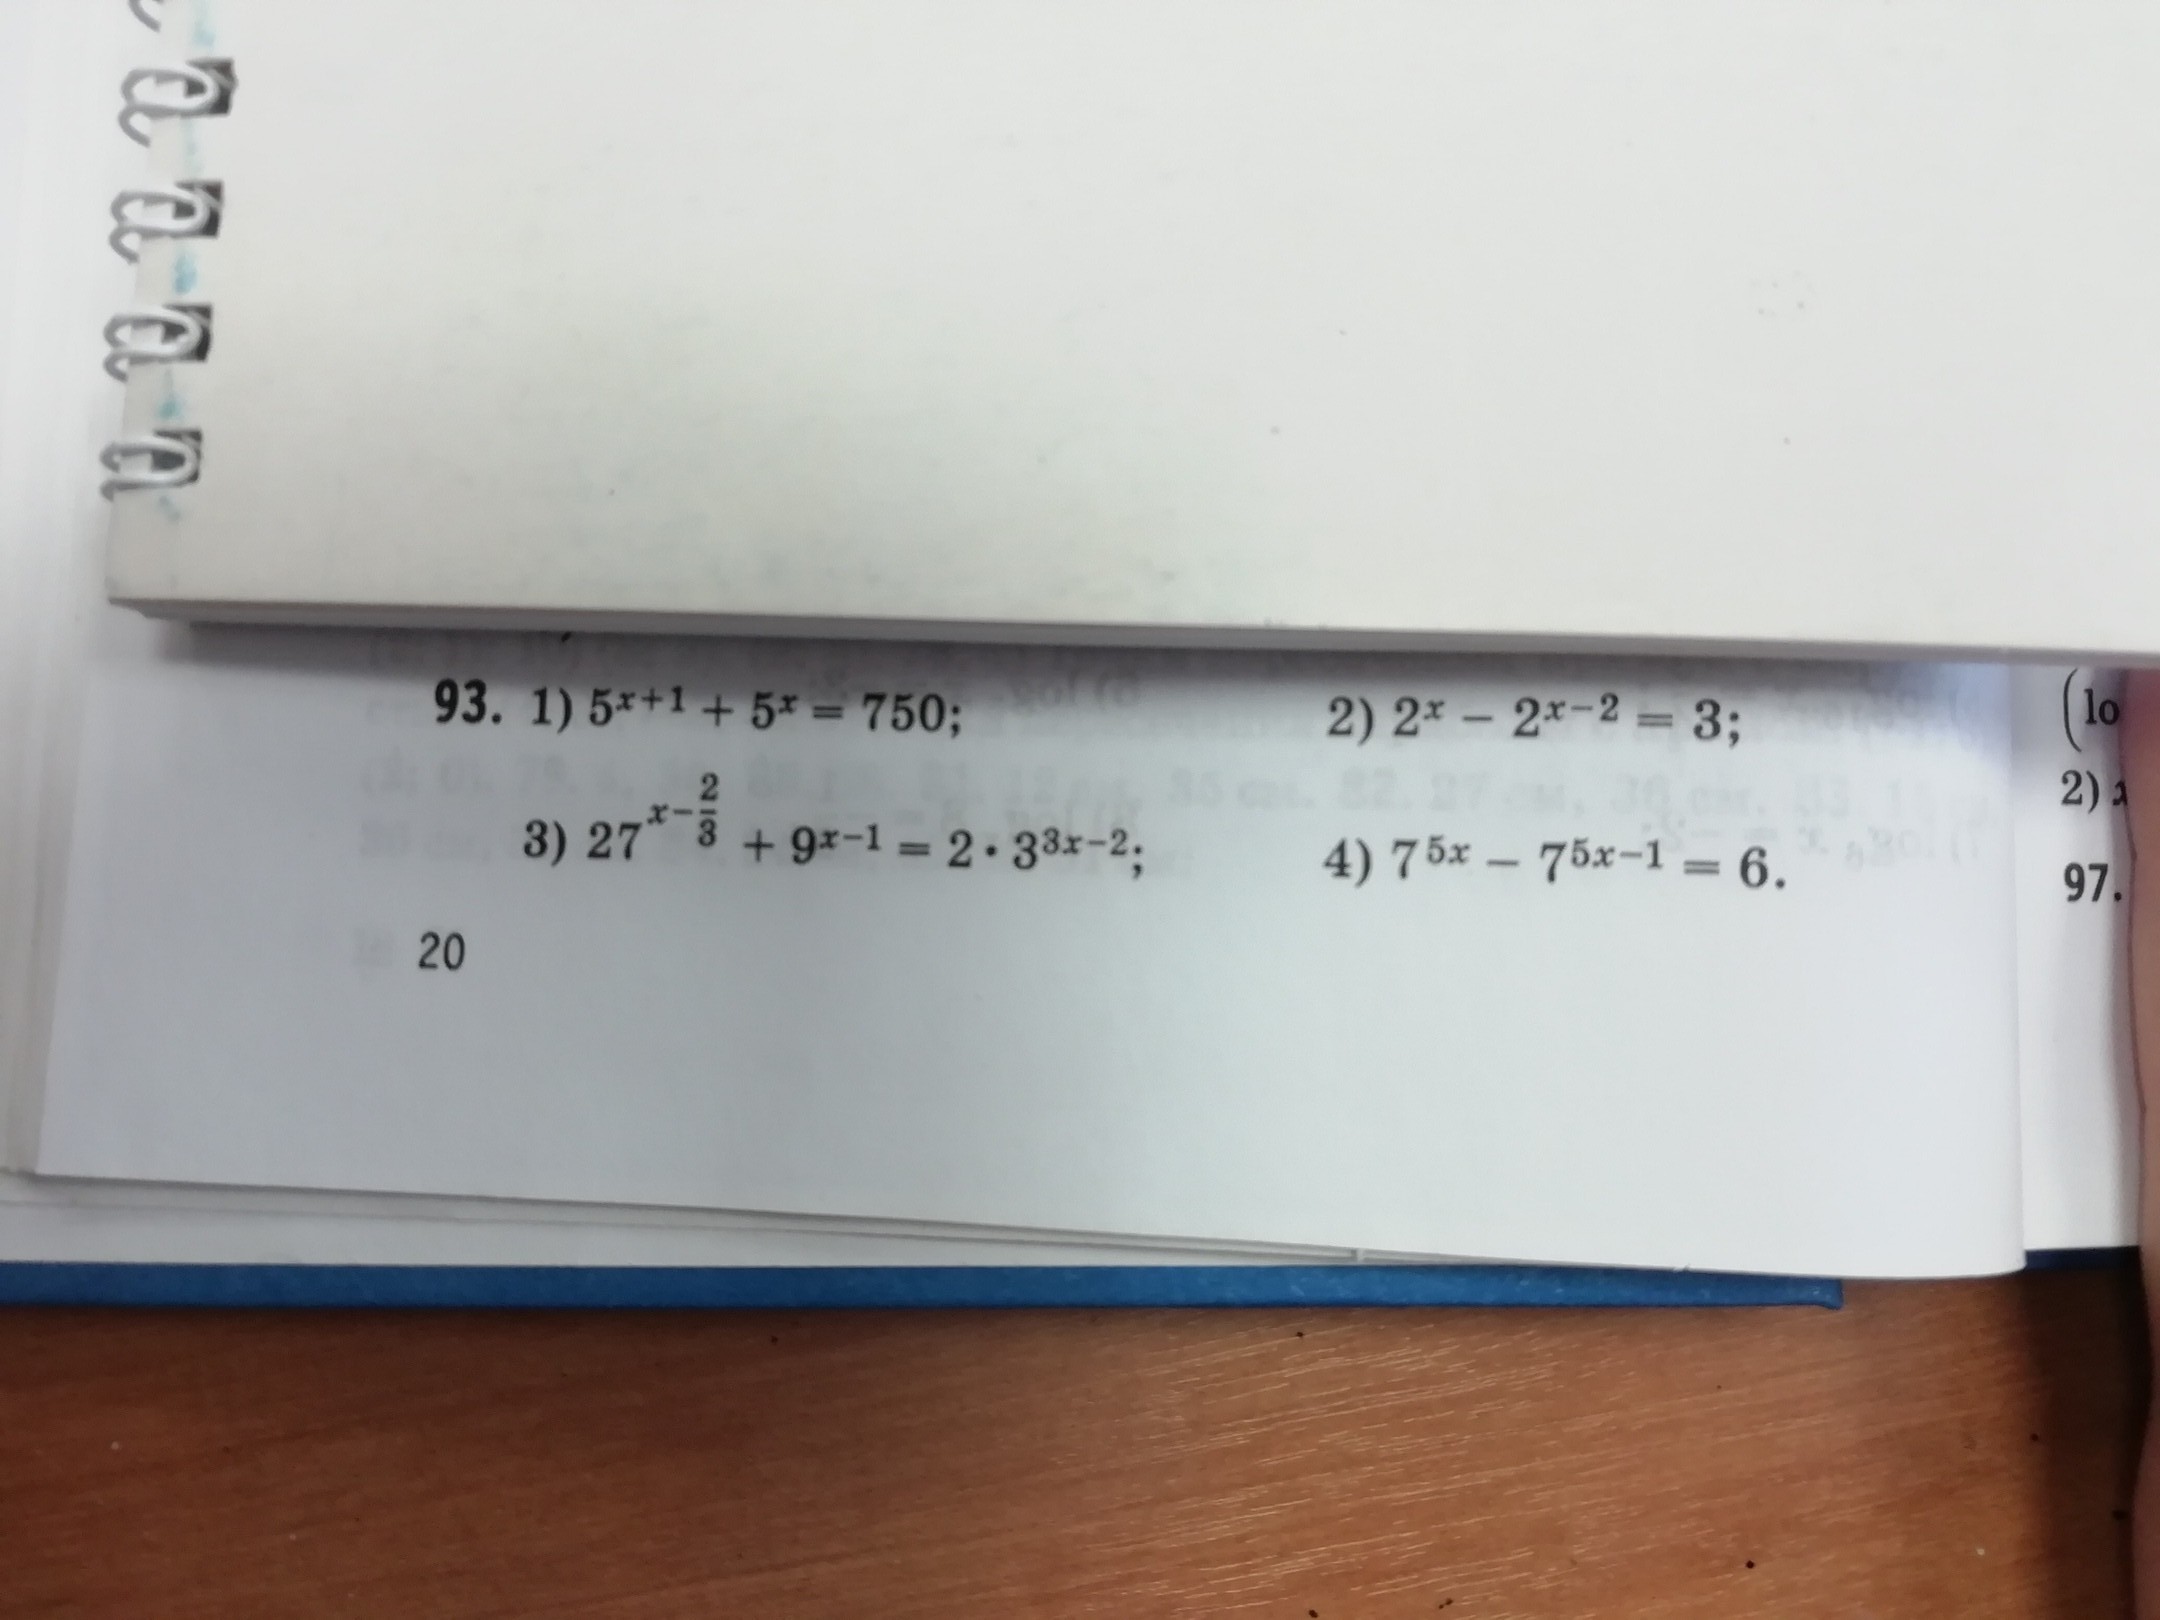 93. 1) 5^{x+1} + 5^x = 750; 2) 2^x − 2^{x−2} = 3;
3) 27^{x−\frac{2}{3}} + 9^{x−1} = 2 · 3^{3x−2}; 4) 7^{5x} − 7^{5x−1} = 6.
20
(lo
2)
97.